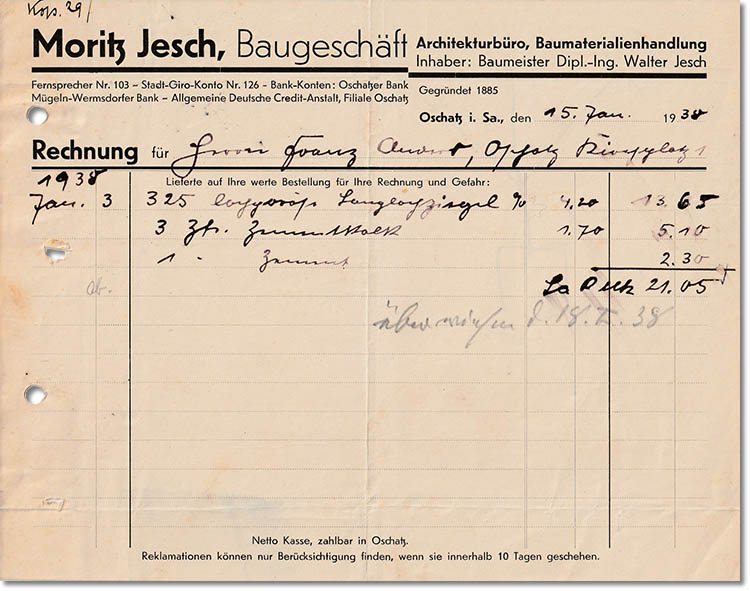 Kop. 29/
Moritz Jesch, Baugeschäft
Architekturbüro, Baumaterialienhandlung
Inhaber: Baumeister Dipl.-Ing. Walter Jesch
Fernsprecher Nr. 103 – Stadt-Giro-Konto Nr. 126 – Bank-Konten: Oschatzer Bank
Mügeln-Wermsdorfer Bank – Allgemeine Deutsche Credit-Anstalt, Filiale Oschatz
Gegründet 1885
Oschatz i. Sa., den 15. Jan. 1938
Rechnung für Herrn Franz Oschatz Kirchplatz 1
1938 Lieferte auf Ihre werte Bestellung für Ihre Rechnung und Gefahr:
Jan. 3 325 Langlochziegel % 4.20 13.65
3 Ztr. Zementkalk 1.70 5.10
1 " Zement 2.30
Sa RMk 21.05
ab.
überwiesen d. 18. 38
Netto Kasse, zahlbar in Oschatz.
Reklamationen können nur Berücksichtigung finden, wenn sie innerhalb 10 Tagen geschehen.